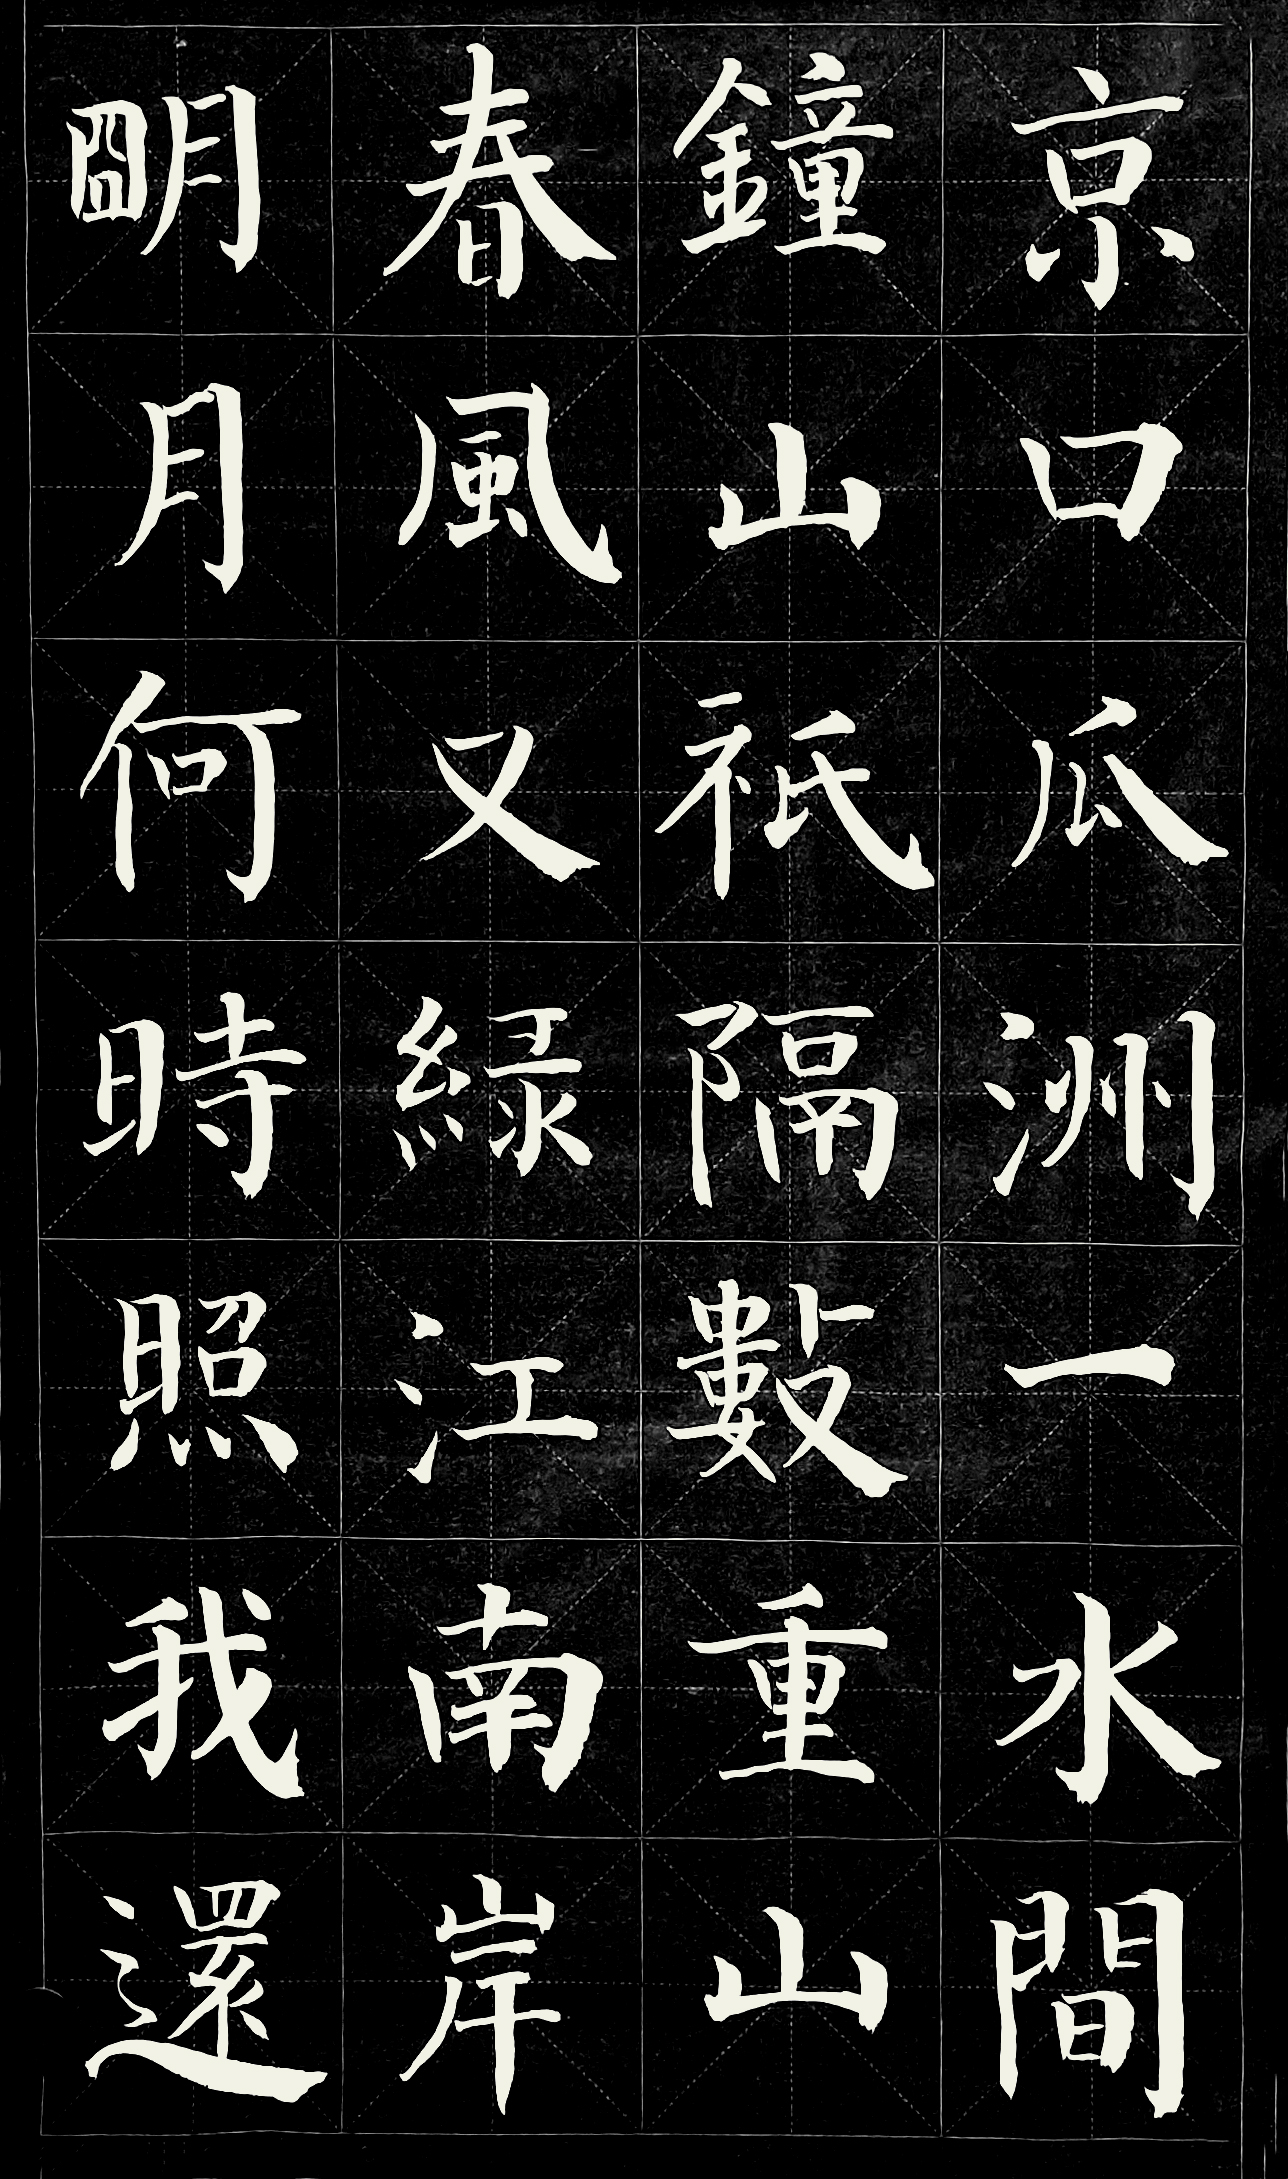 京口瓜洲一水間
鐘山祇隔數重山
春風又緑江南岸
朙月何時照我還